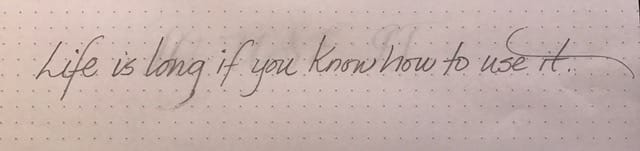 Life is long if you know how to use it.